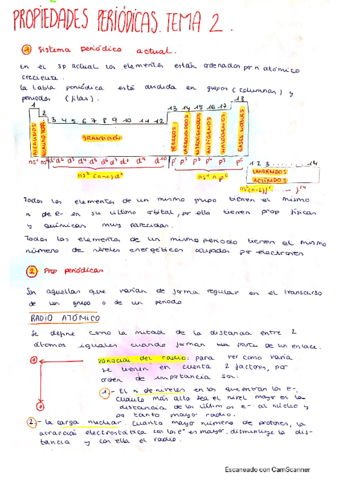 PROPIEDADES PERIÓDICAS. TEMA 2.
1 Sistema periódico actual.
En el SP actual los elementos están ordenados por n atómico
creciente.
La tabla periódica está dividida en grupos (columnas) y
periodos (filas).
1 2 3 4 5 6 7 8 9 10 11 12 13 14 15 16 17 18
ALCALINOS
TRANSICIÓN
TÉRREOS
HALÓGENOS
GASES NOBLES
1 2 3 ... 14
LANTÁNIDOS
ACTÍNIDOS
Todos los elementos de un mismo grupo tienen el mismo
n° de e- en su último orbital, por ello tienen prop físicas
y químicas muy parecidas.
Todos los elementos de un mismo periodo tienen el mismo
número de niveles energéticos ocupados por electrones
2 Prop periódicas
Son aquellas que varían de forma regular en el transcurso
de un grupo o de un periodo
RADIO ATÓMICO
Se define como la mitad de la distancia entre 2
átomos iguales cuando forman parte de un enlace.
Variación del radio: para ver como varía
se tienen en cuenta 2 factores, por
orden de importancia son:
1- El n de niveles en los que entran los e-,
cuanto más alto sea el nivel mayor es la
distancia de los últimos e- al núcleo y
por tanto mayor radio.
2- La carga nuclear. Cuanto mayor número de protones, la
atracción electrostática con los e- es mayor, disminuye la dis-
tancia y con ella el radio.
Escaneado con CamScanner